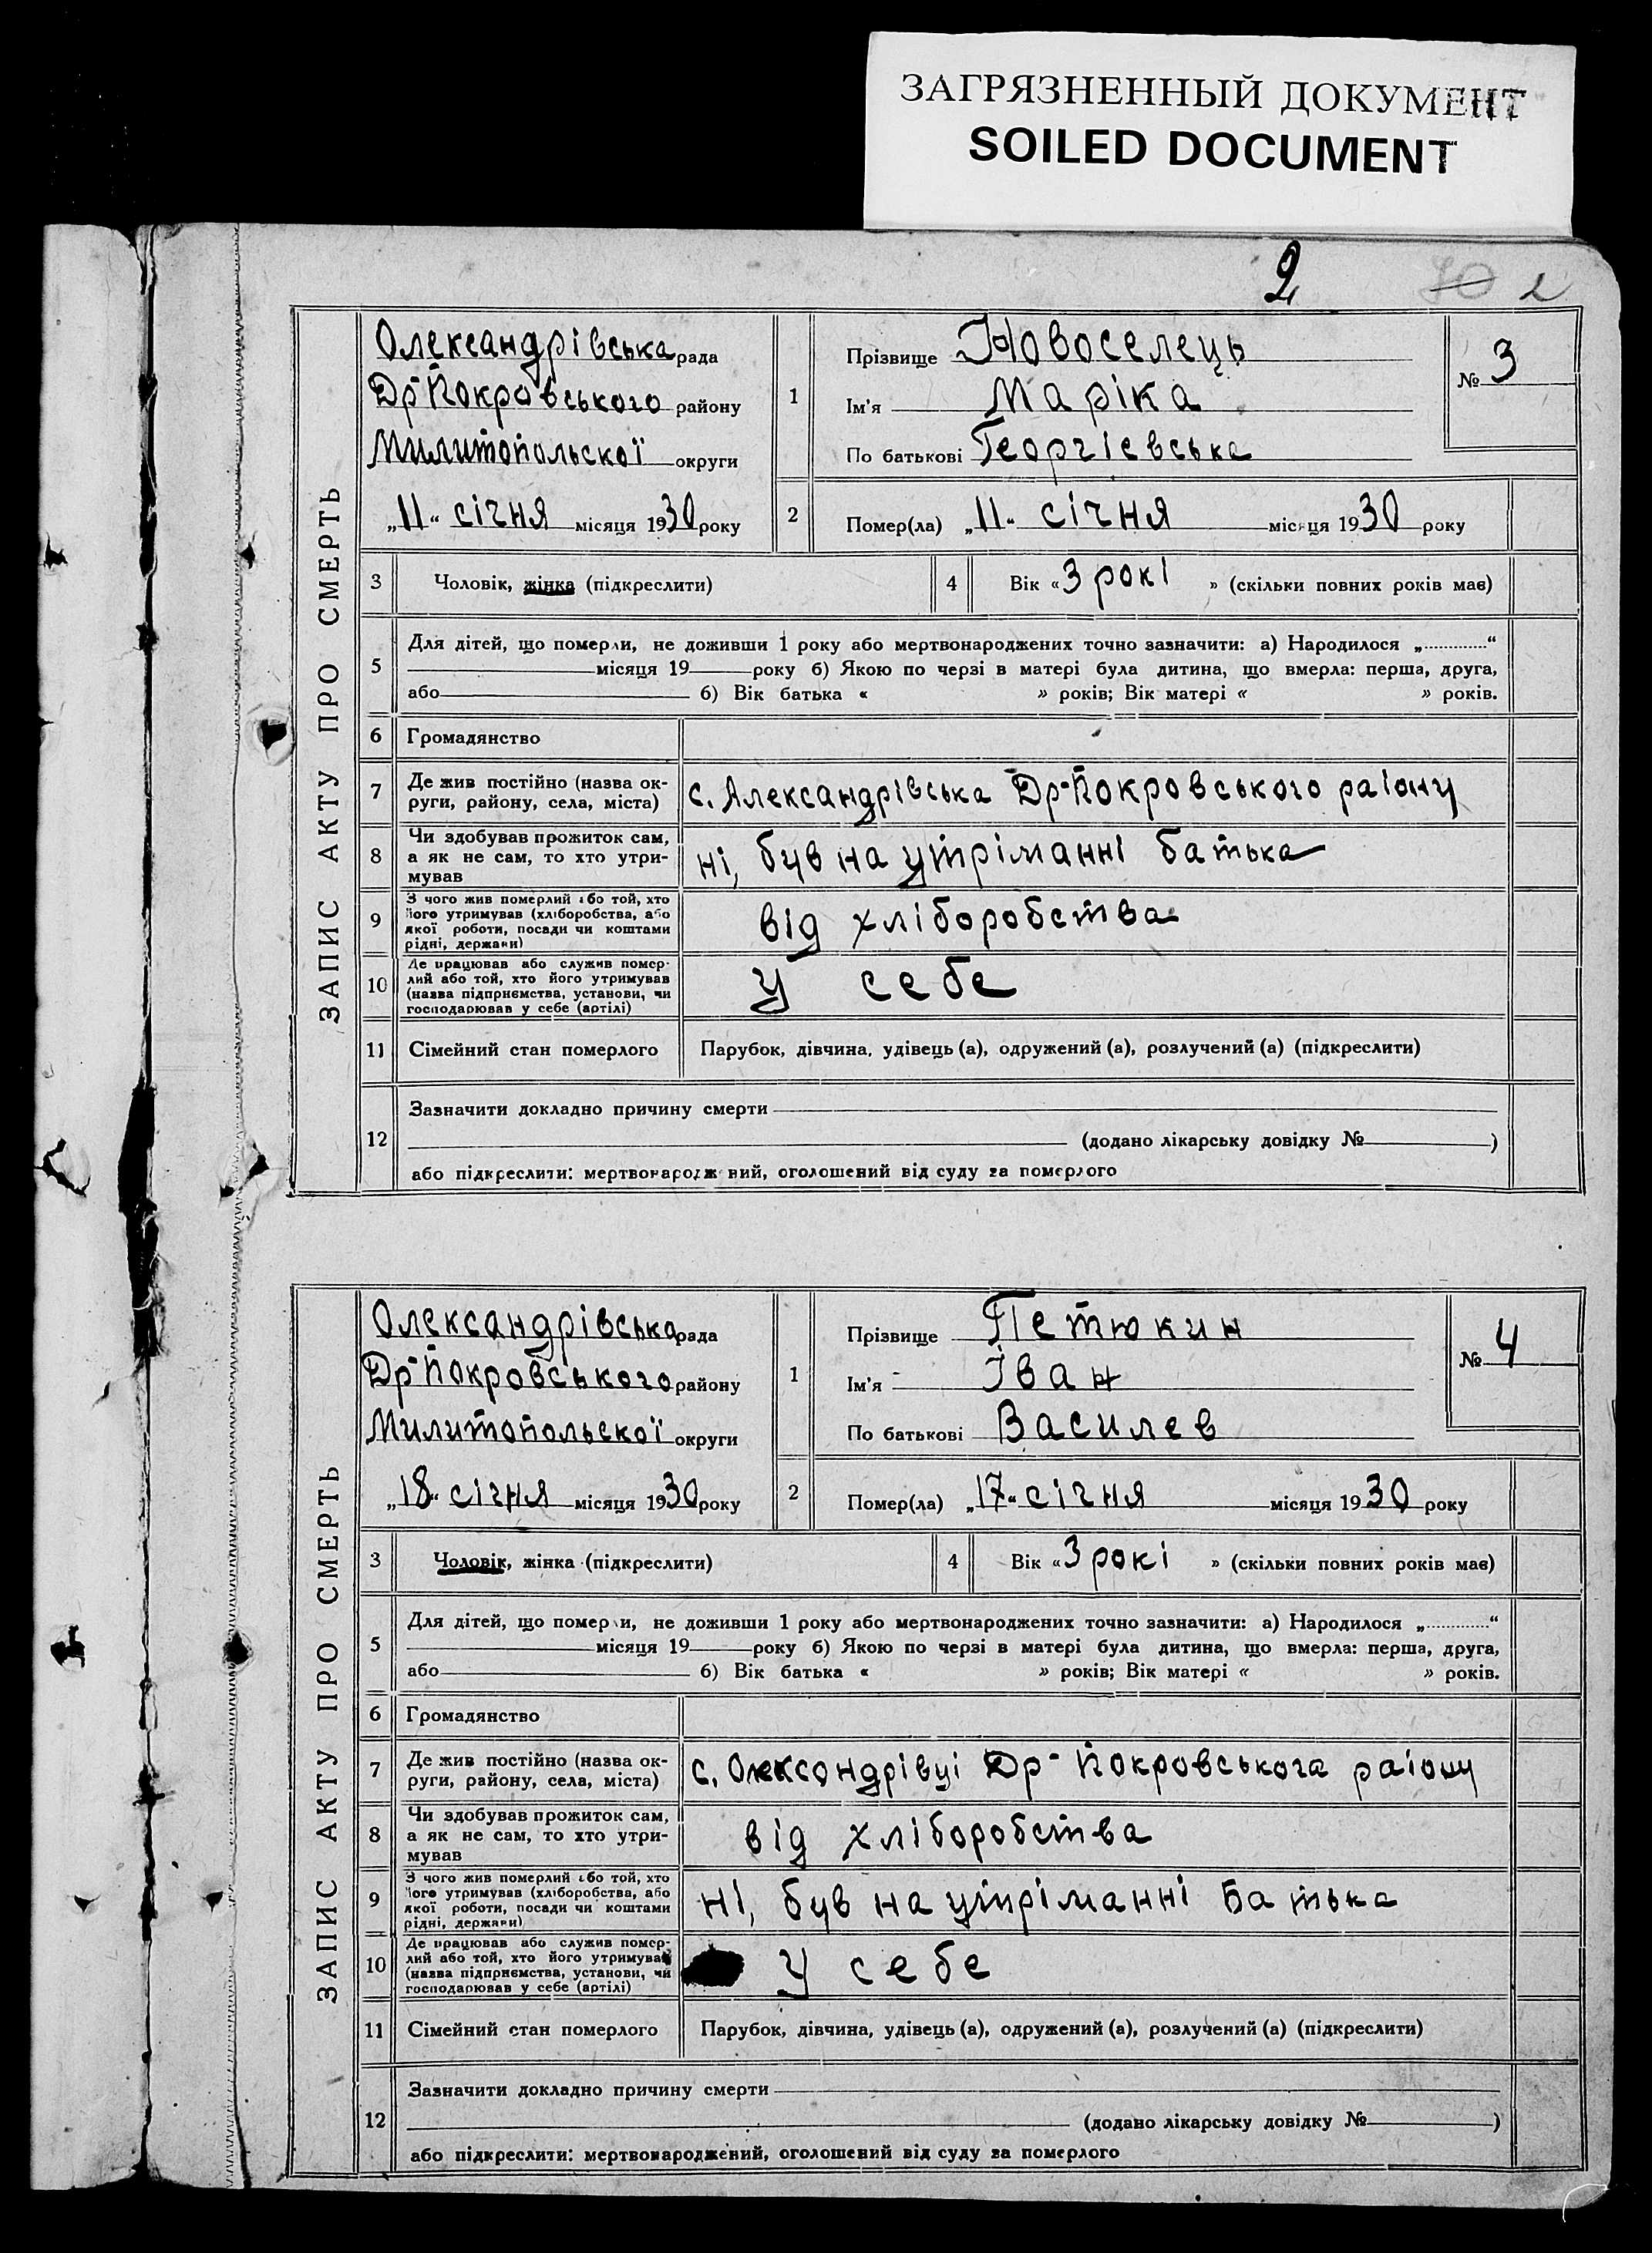 ЗАГРЯЗНЕННЫЙ ДОКУМЕНТ
SOILED DOCUMENT
2
70 2
ЗАПИС АКТУ ПРО СМЕРТЬ
Олександрівська рада
Др-Покровського району
Милитопольскої округи
„11“ січня місяця 1930 року
1
Прізвище Новоселець
Ім'я Маріка
По батькові Георгіевська
№ 3
2
Помер(ла) „11“ січня місяця 1930 року
3 Чоловік, жінка (підкреслити)
4 Вік «3 рокі» (скільки повних років має)
5
Для дітей, що померли, не доживши 1 року або мертвонароджених точно зазначити: а) Народилося „............“
місяця 19 року б) Якою по черзі в матері була дитина, що вмерла: перша, друга,
або б) Вік батька « » років; Вік матері « » років.
6 Громадянство
7 Де жив постійно (назва ок-
руги, району, села, міста)
с. Александрівська Др-Покровського раіону
8 Чи здобував прожиток сам,
а як не сам, то хто утри-
мував
ні, був на утріманні батька
9 З чого жив померлий або той, хто
його утримував (хліборобства, або
якої роботи, посади чи коштами
рідні, держави)
від хліборобства
10 Де працював або служив помер-
лий або той, хто його утримував
(назва підприємства, установи, чи
господарював у себе (артілі)
у себе
11 Сімейний стан померлого Парубок, дівчина, удівець (а), одружений (а), розлучений (а) (підкреслити)
12
Зазначити докладно причину смерти
(додано лікарську довідку № )
або підкреслити: мертвонароджений, оголошений від суду за померлого
ЗАПИС АКТУ ПРО СМЕРТЬ
Олександрівська рада
Др-Покровського району
Милитопольскої округи
„18“ січня місяця 1930 року
1
Прізвище Петюкин
Ім'я Іван
По батькові Василев
№ 4
2
Помер(ла) „17“ січня місяця 1930 року
3 Чоловік, жінка (підкреслити)
4 Вік «3 рокі» (скільки повних років має)
5
Для дітей, що померли, не доживши 1 року або мертвонароджених точно зазначити: а) Народилося „............“
місяця 19 року б) Якою по черзі в матері була дитина, що вмерла: перша, друга,
або б) Вік батька « » років; Вік матері « » років.
6 Громадянство
7 Де жив постійно (назва ок-
руги, району, села, міста)
с. Олександрівці Др-Покровськога раіону
8 Чи здобував прожиток сам,
а як не сам, то хто утри-
мував
від хліборобства
9 З чого жив померлий або той, хто
його утримував (хліборобства, або
якої роботи, посади чи коштами
рідні, держави)
ні, був на утріманні батька
10 Де працював або служив помер-
лий або той, хто його утримував
(назва підприємства, установи, чи
господарював у себе (артілі)
у себе
11 Сімейний стан померлого Парубок, дівчина, удівець (а), одружений (а), розлучений (а) (підкреслити)
12
Зазначити докладно причину смерти
(додано лікарську довідку № )
або підкреслити: мертвонароджений, оголошений від суду за померлого